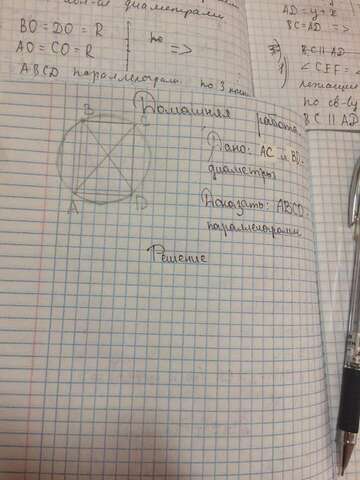 диаметрами
BO = DO = R
AO = CO = R
=>
ABCD параллелограм. по 3
AD = y + x
BC = AD =>
BC || AD
∠CEF =
по св-ву
BC || AD
Домашняя работа
Дано: AC и BD-
диаметры
Доказать: ABCD-
параллелограмм
B
C
A
D
Решение